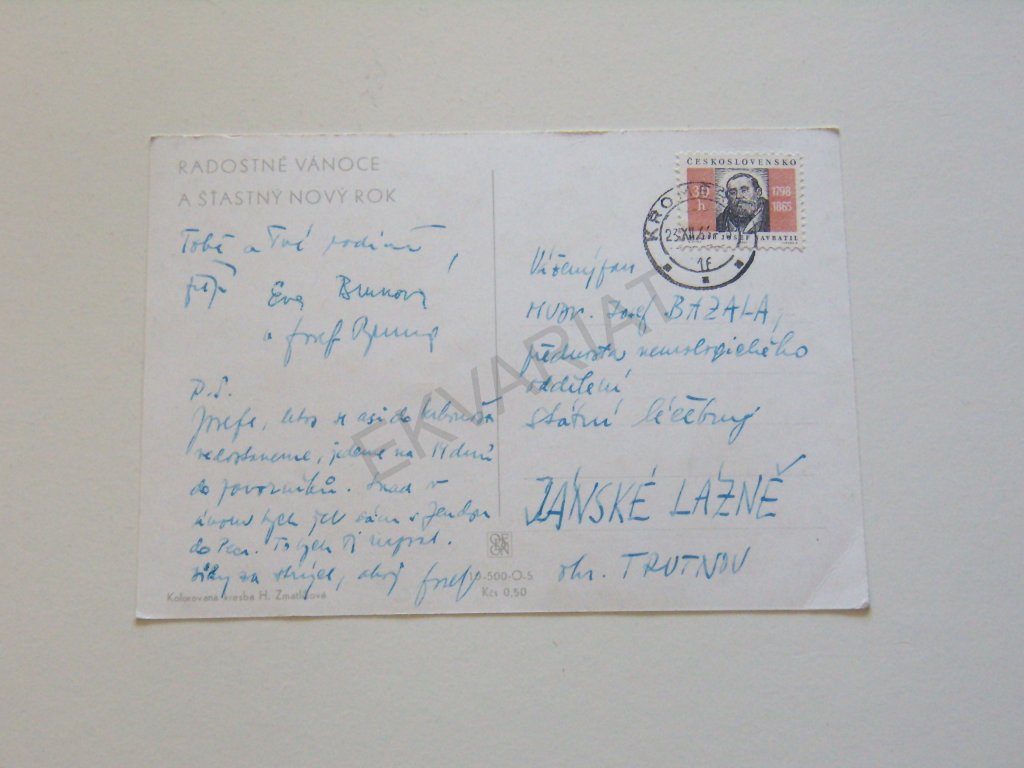 RADOSTNÉ VÁNOCE
A ŠŤASTNÝ NOVÝ ROK
Tobě a Tvé rodině
přejí Eva Brunová
a Josef Bruna
P.S.
Josefe, letos se asi do
nedostaneme, jedeme na 14 dnů
do Javorníků. Snad v
únoru bych jel sám s
do Pece. To bych Ti napsal.
Díky za, ahoj Josef
Kolorovaná kresba H. Zmatlíková
19-500-O-5
Kčs 0,50
ČESKOSLOVENSKO
30
h
1798
1865
JOSEF NAVRÁTIL
KROMĚŘ
23.XII.
1f
Vážený pan
MUDr. Josef BAZALA,
přednosta neurologického
oddělení
státní léčebny
JÁNSKÉ LÁZNĚ
okr. TRUTNOV
EKVARIAT